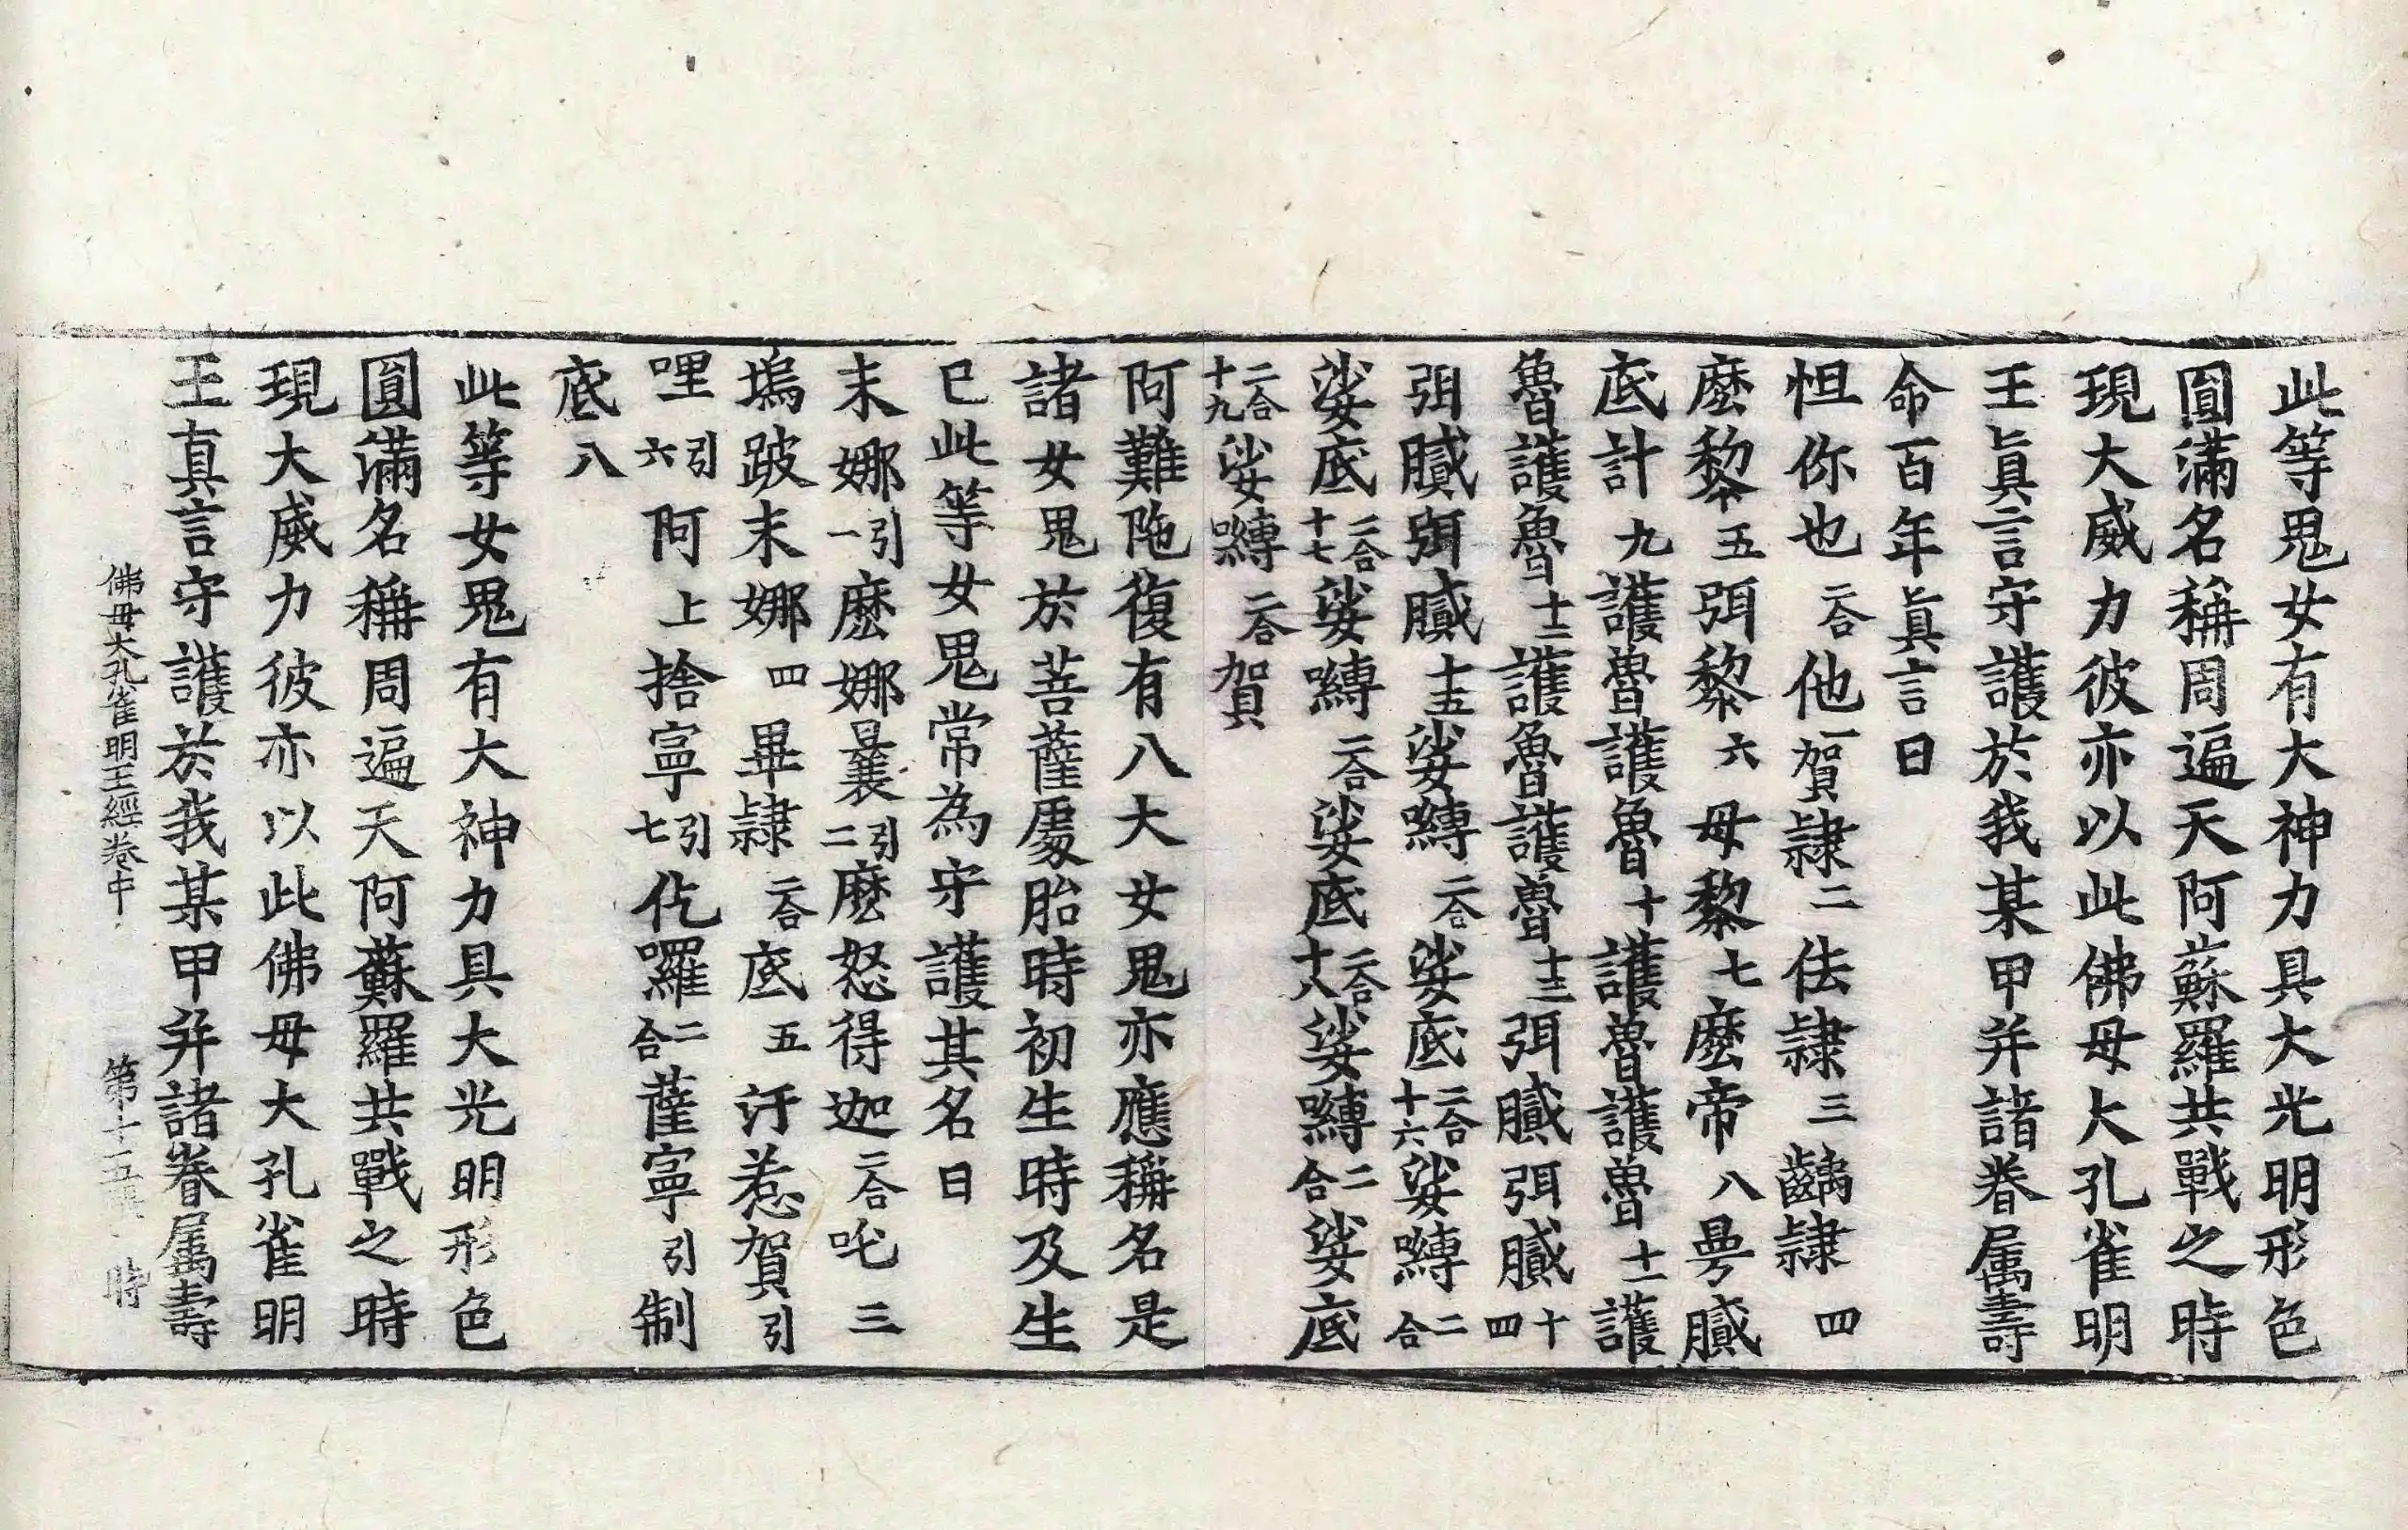 此等鬼女有大神力具大光明形色
圓滿名稱周遍天阿蘇羅共戰之時
現大威力彼亦以此佛母大孔雀明
王眞言守護於我某甲并諸眷属壽
命百年眞言曰
怛你也二合他一賀隷二佉隷三齲隷四
麼黎五弭黎六母黎七麼帝八曼膩
底計九護魯護魯十護魯護魯十一護
魯護魯十二護魯護魯十三弭膩弭膩十四
弭膩弭膩十五娑嚩二合娑底二合十六娑嚩二合
娑底二合十七娑嚩二合娑底二合十八娑嚩二合娑底
二合十九娑嚩二合賀
阿難陁復有八大女鬼亦應稱名是
諸女鬼於菩薩處胎時初生時及生
已此等女鬼常為守護其名曰
末娜引一麼娜曩引二麼怒得迦二合吒三
塢跛末娜四畢隷二合底五汙惹賀引
哩引六阿上捨寧引七仡囉二合薩寧引制
底八
此等女鬼有大神力具大光明形色
圓滿名稱周遍天阿蘇羅共戰之時
現大威力彼亦以此佛母大孔雀明
王真言守護於我某甲并諸眷属壽
佛母大孔雀明王經卷中 第十五 時